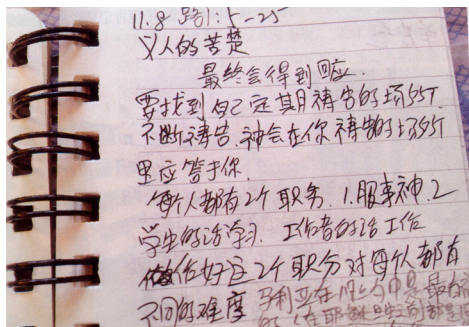 11.8 路1:5-25
义人的苦楚
最终会得到回应.
要找到自己定期祷告的场所
不断祷告.神会在你祷告的场所
里应答于你.
每个人都有2个职务.1.服事神.2
学生的话学习.工作者的话工作
做好这2个职分对每个人都有
不同的难度 马利亚在